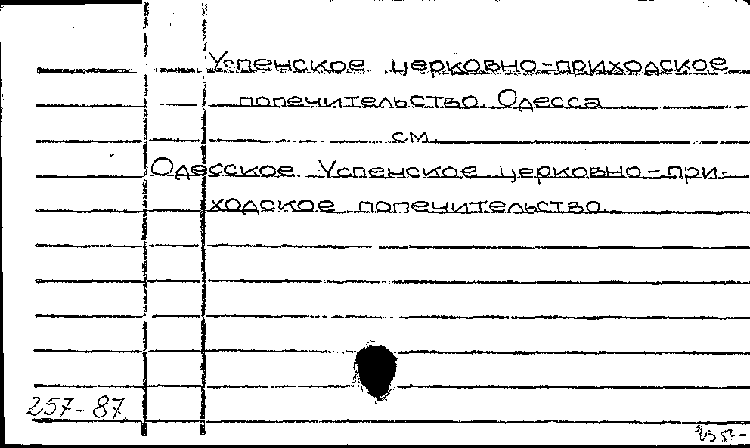 Успенское церковно-приходское
попечительство. Одесса
см.
Одесское Успенское церковно-при-
ходское попечительство.
257-87